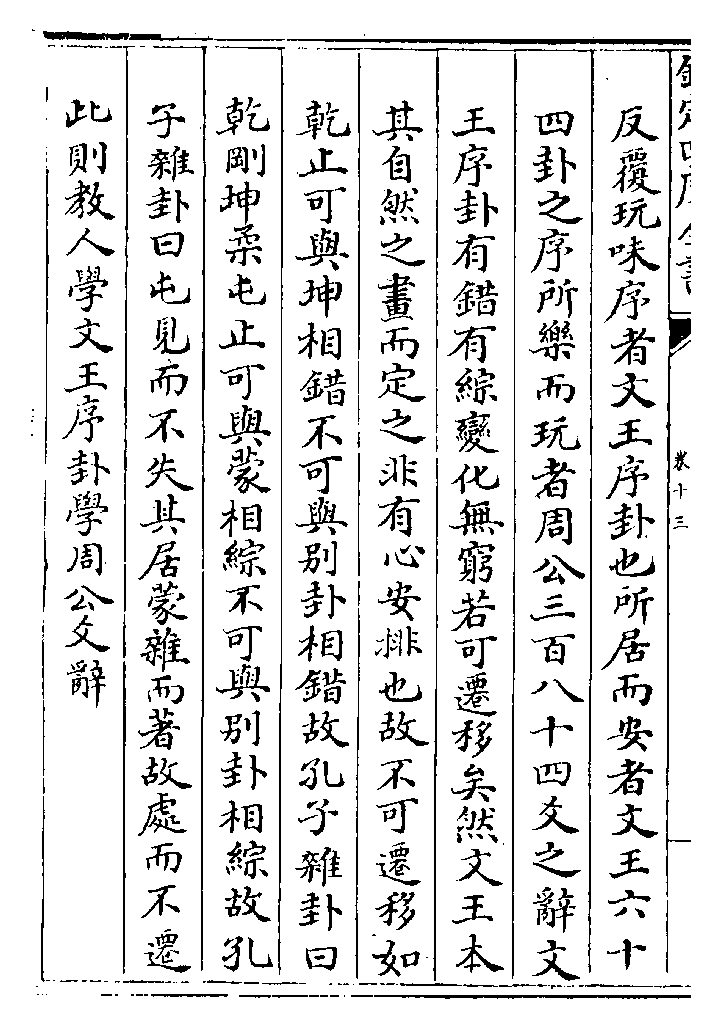 欽定四庫全書
卷十三
反覆玩味序者文王序卦也所居而安者文王六十
四卦之序所樂而玩者周公三百八十四爻之辭文
王序卦有錯有綜變化無窮若可遷移矣然文王本
其自然之畫而定之非有心安排也故不可遷移如
乾止可與坤相錯不可與別卦相錯故孔子雜卦曰
乾剛坤柔屯止可與蒙相綜不可與別卦相綜故孔
子雜卦曰屯見而不失其居蒙雜而著故處而不遷
此則教人學文王序卦學周公爻辭